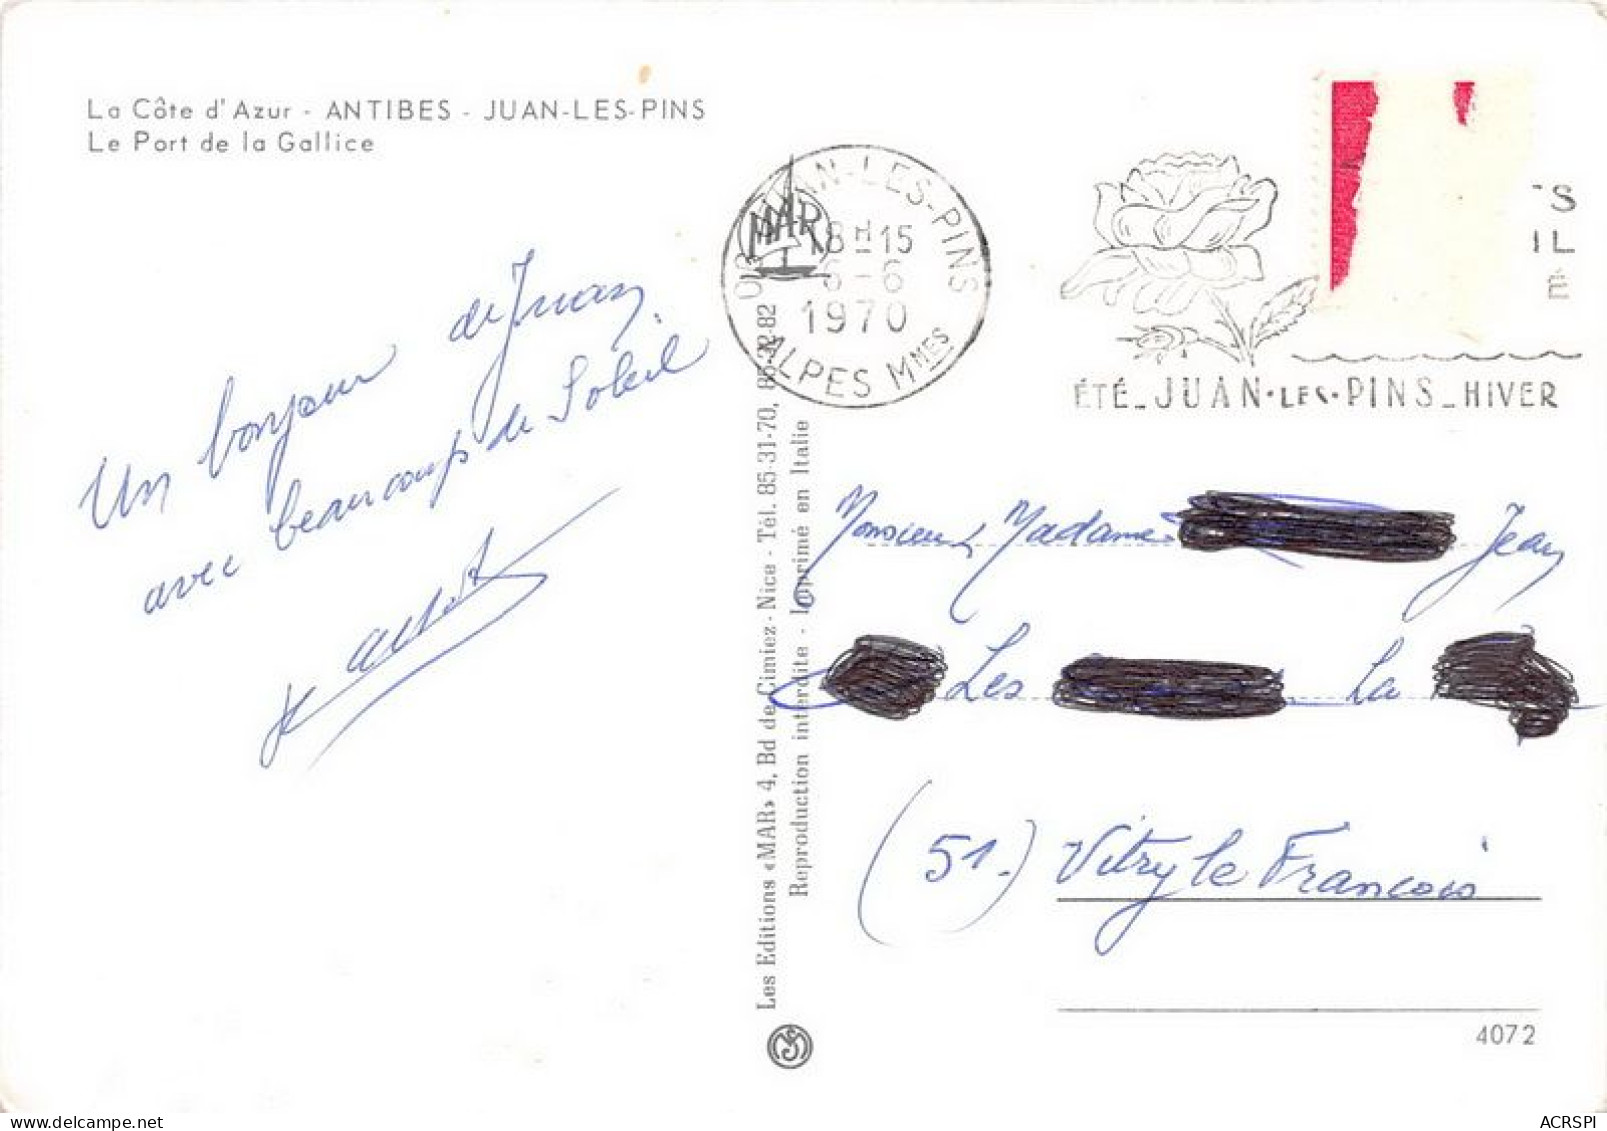 La Côte d'Azur - ANTIBES - JUAN-LES-PINS
Le Port de la Gallice
JUAN-LES-PINS
MAR
18H15
6-6
1970
ALPES MMES
TS
IL
É
ÉTÉ_JUAN·LES·PINS_HIVER
Un bonjour de Juan
avec beaucoup de Soleil
Les Editions «MAR» 4, Bd de Cimiez - Nice - Tél. 85-31-70, 85-32-82
Reproduction interdite - Imprimé en Italie
Monsieur Madame Jean
Les La
(51.) Vitry le Francois
4072
ACRSPI